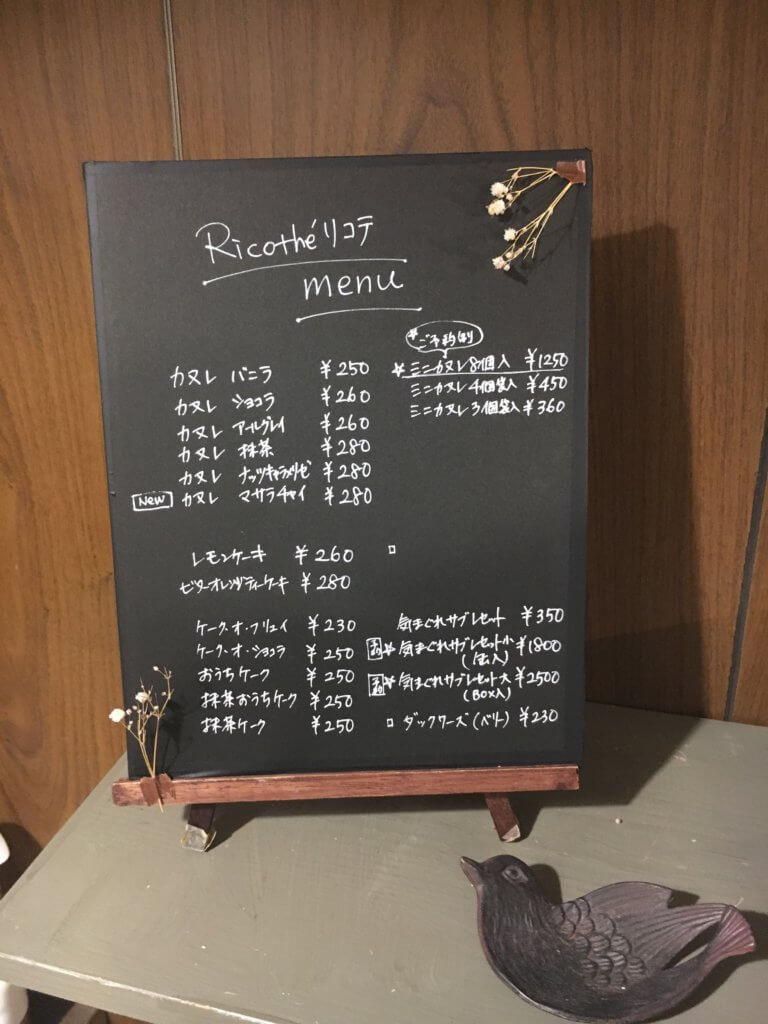 Ricothé リコテ
menu
カヌレ バニラ ¥250
カヌレ ショコラ ¥260
カヌレ アールグレイ ¥260
カヌレ 抹茶 ¥280
カヌレ ナッツキャラメリゼ ¥280
New カヌレ マサラチャイ ¥280
レモンケーキ ¥260
ビターオレンジティーケーキ ¥280
ケーク・オ・フリュイ ¥230
ケーク・オ・ショコラ ¥250
おうちケーク ¥250
抹茶おうちケーク ¥250
抹茶ケーク ¥250
*ご予約制
*ミニカヌレ8個入 ¥1250
ミニカヌレ4個袋入 ¥450
ミニカヌレ3個袋入 ¥360
気まぐれサブレセット ¥350
*気まぐれサブレセット小 ¥1800
(缶入)
*気まぐれサブレセット大 ¥2500
(BOX入)
ダックワーズ(ベリー) ¥230